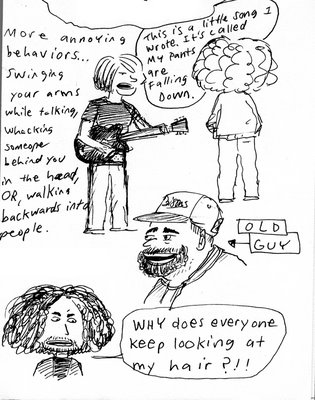 More annoying
behaviors...
Swinging
your arms
while talking,
whacking
someone
behind you
in the head,
OR, walking
backwards into
people.
This is a little song I
wrote. It's called
My Pants
are
Falling
Down.
OLD
GUY
WHY does everyone
keep looking at
my hair?!!